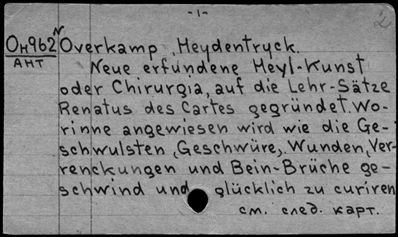 -1-
2
Он962 N Overkamp, Heydentryck.
АНТ
Neue erfundene Heyl-Kunst
oder Chirurgia, auf die Lehr-Sätze
Renatus des Cartes gegründet. Wo-
rinne angewiesen wird wie die Ge-
schwulsten, Geschwüre, Wunden, Ver-
renckungen und Bein-Brüche ge-
schwind und glücklich zu curiren
см. след. карт.